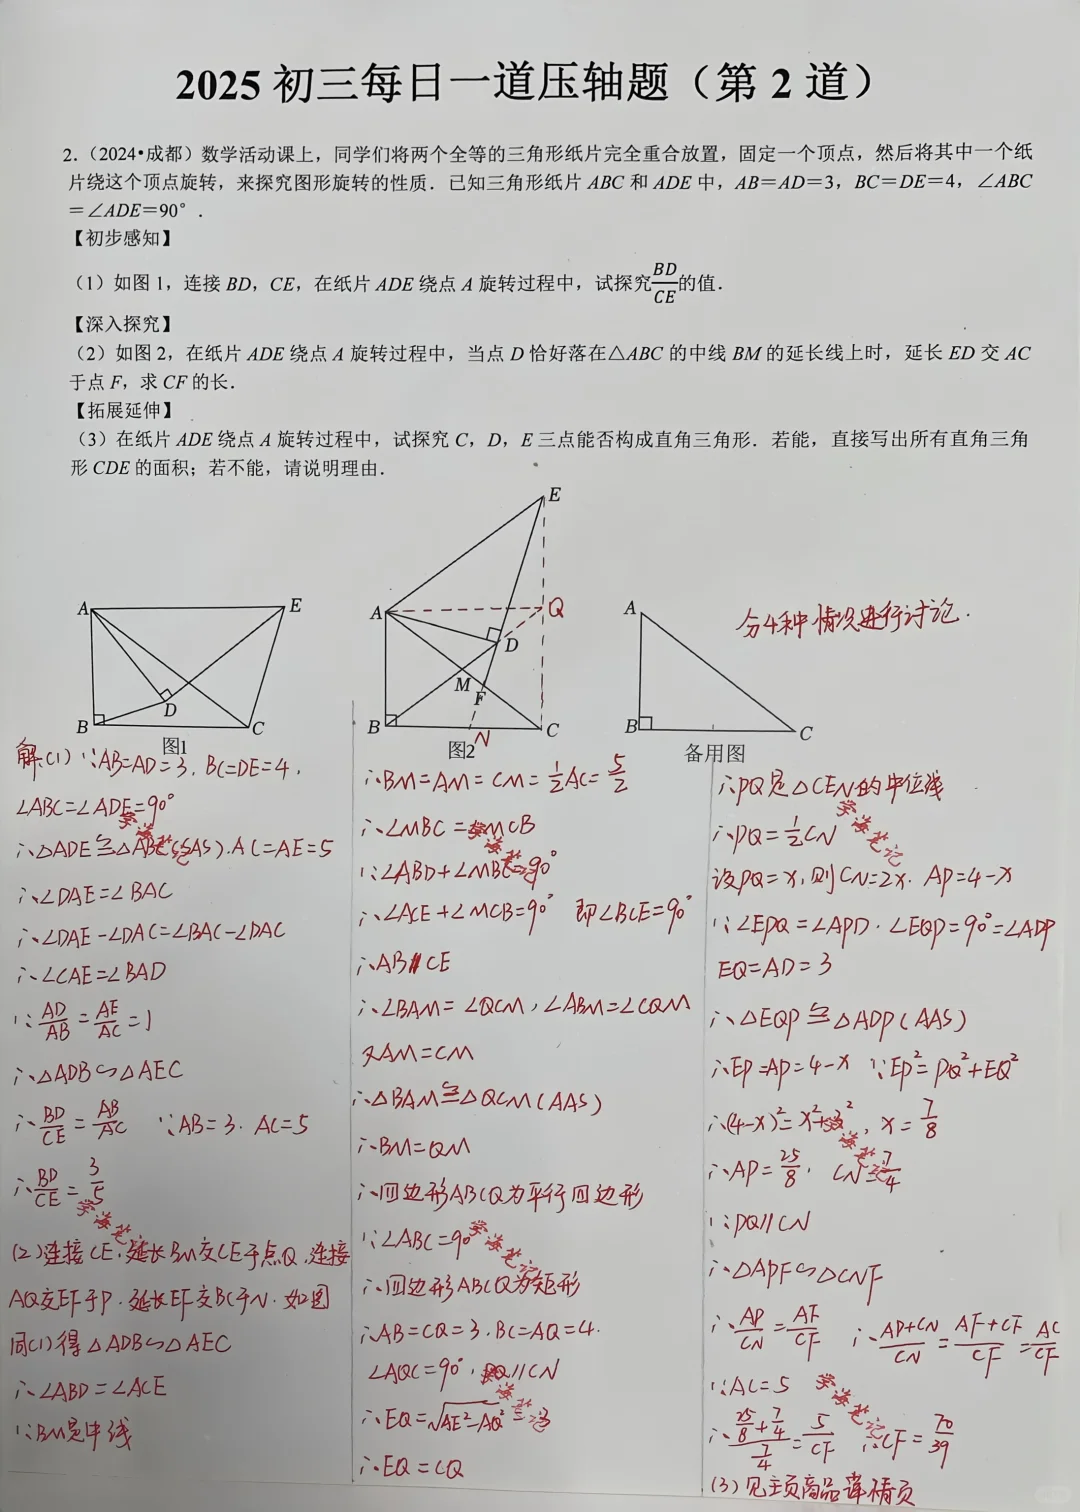 2025 初三每日一道压轴题（第 2 道）
2.（2024•成都）数学活动课上，同学们将两个全等的三角形纸片完全重合放置，固定一个顶点，然后将其中一个纸
片绕这个顶点旋转，来探究图形旋转的性质．已知三角形纸片 ABC 和 ADE 中，AB＝AD＝3，BC＝DE＝4，∠ABC
＝∠ADE＝90°．
【初步感知】
（1）如图 1，连接 BD，CE，在纸片 ADE 绕点 A 旋转过程中，试探究BD/CE的值．
【深入探究】
（2）如图 2，在纸片 ADE 绕点 A 旋转过程中，当点 D 恰好落在△ABC 的中线 BM 的延长线上时，延长 ED 交 AC
于点 F，求 CF 的长．
【拓展延伸】
（3）在纸片 ADE 绕点 A 旋转过程中，试探究 C，D，E 三点能否构成直角三角形．若能，直接写出所有直角三角
形 CDE 的面积；若不能，请说明理由．
A E B D C
图1
E A Q D M F B N C
图2
A B C
备用图
分4种情况进行讨论.
解:(1) ∵AB=AD=3, BC=DE=4,
∠ABC=∠ADE=90°
∴△ADE≌△ABC(SAS).AC=AE=5
∴∠DAE=∠BAC
∴∠DAE-∠DAC=∠BAC-∠DAC
∴∠CAE=∠BAD
∵AD/AB=AE/AC=1
∴△ADB∽△AEC
∴BD/CE=AB/AC ∵AB=3. AC=5
∴BD/CE=3/5
学海笔记
(2)连接CE,延长BM交CE于点Q,连接
AQ交EF于P.延长EF交BC于N.如图
同(1)得△ADB∽△AEC
∴∠ABD=∠ACE
∵BM是中线
∴BM=AM=CM=1/2AC=5/2
∴∠MBC=∠MCB
∵∠ABD+∠MBC=90°
∴∠ACE+∠MCB=90° 即∠BCE=90°
∴AB∥CE
∴∠BAM=∠QCM,∠ABM=∠CQM
又AM=CM
∴△BAM≌△QCM(AAS)
∴BM=QM
∴四边形ABCQ为平行四边形
∵∠ABC=90°
学海笔记
∴四边形ABCQ为矩形
∴AB=CQ=3.BC=AQ=4.
∠AQC=90°,PQ∥CN
∴EQ=√AE²-AQ²=3
∴EQ=CQ
∴PQ是△CEN的中位线
学海笔记
∴PQ=1/2CN
设PQ=x,则CN=2x. AP=4-x
∵∠EPQ=∠APD.∠EQP=90°=∠ADP
EQ=AD=3
∴△EQP≌△ADP(AAS)
∴EP=AP=4-x ∵EP²=PQ²+EQ²
∴(4-x)²=x²+3², x=7/8
∴AP=25/8, CN=7/4
∵PQ∥CN
∴△APF∽△CNF
∴AP/CN=AF/CF ∴AP+CN/CN=AF+CF/CF=AC/CF
∵AC=5 学海笔记
∴25/8+7/4/7/4=5/CF ∴CF=70/39
(3)见主页商品详情页